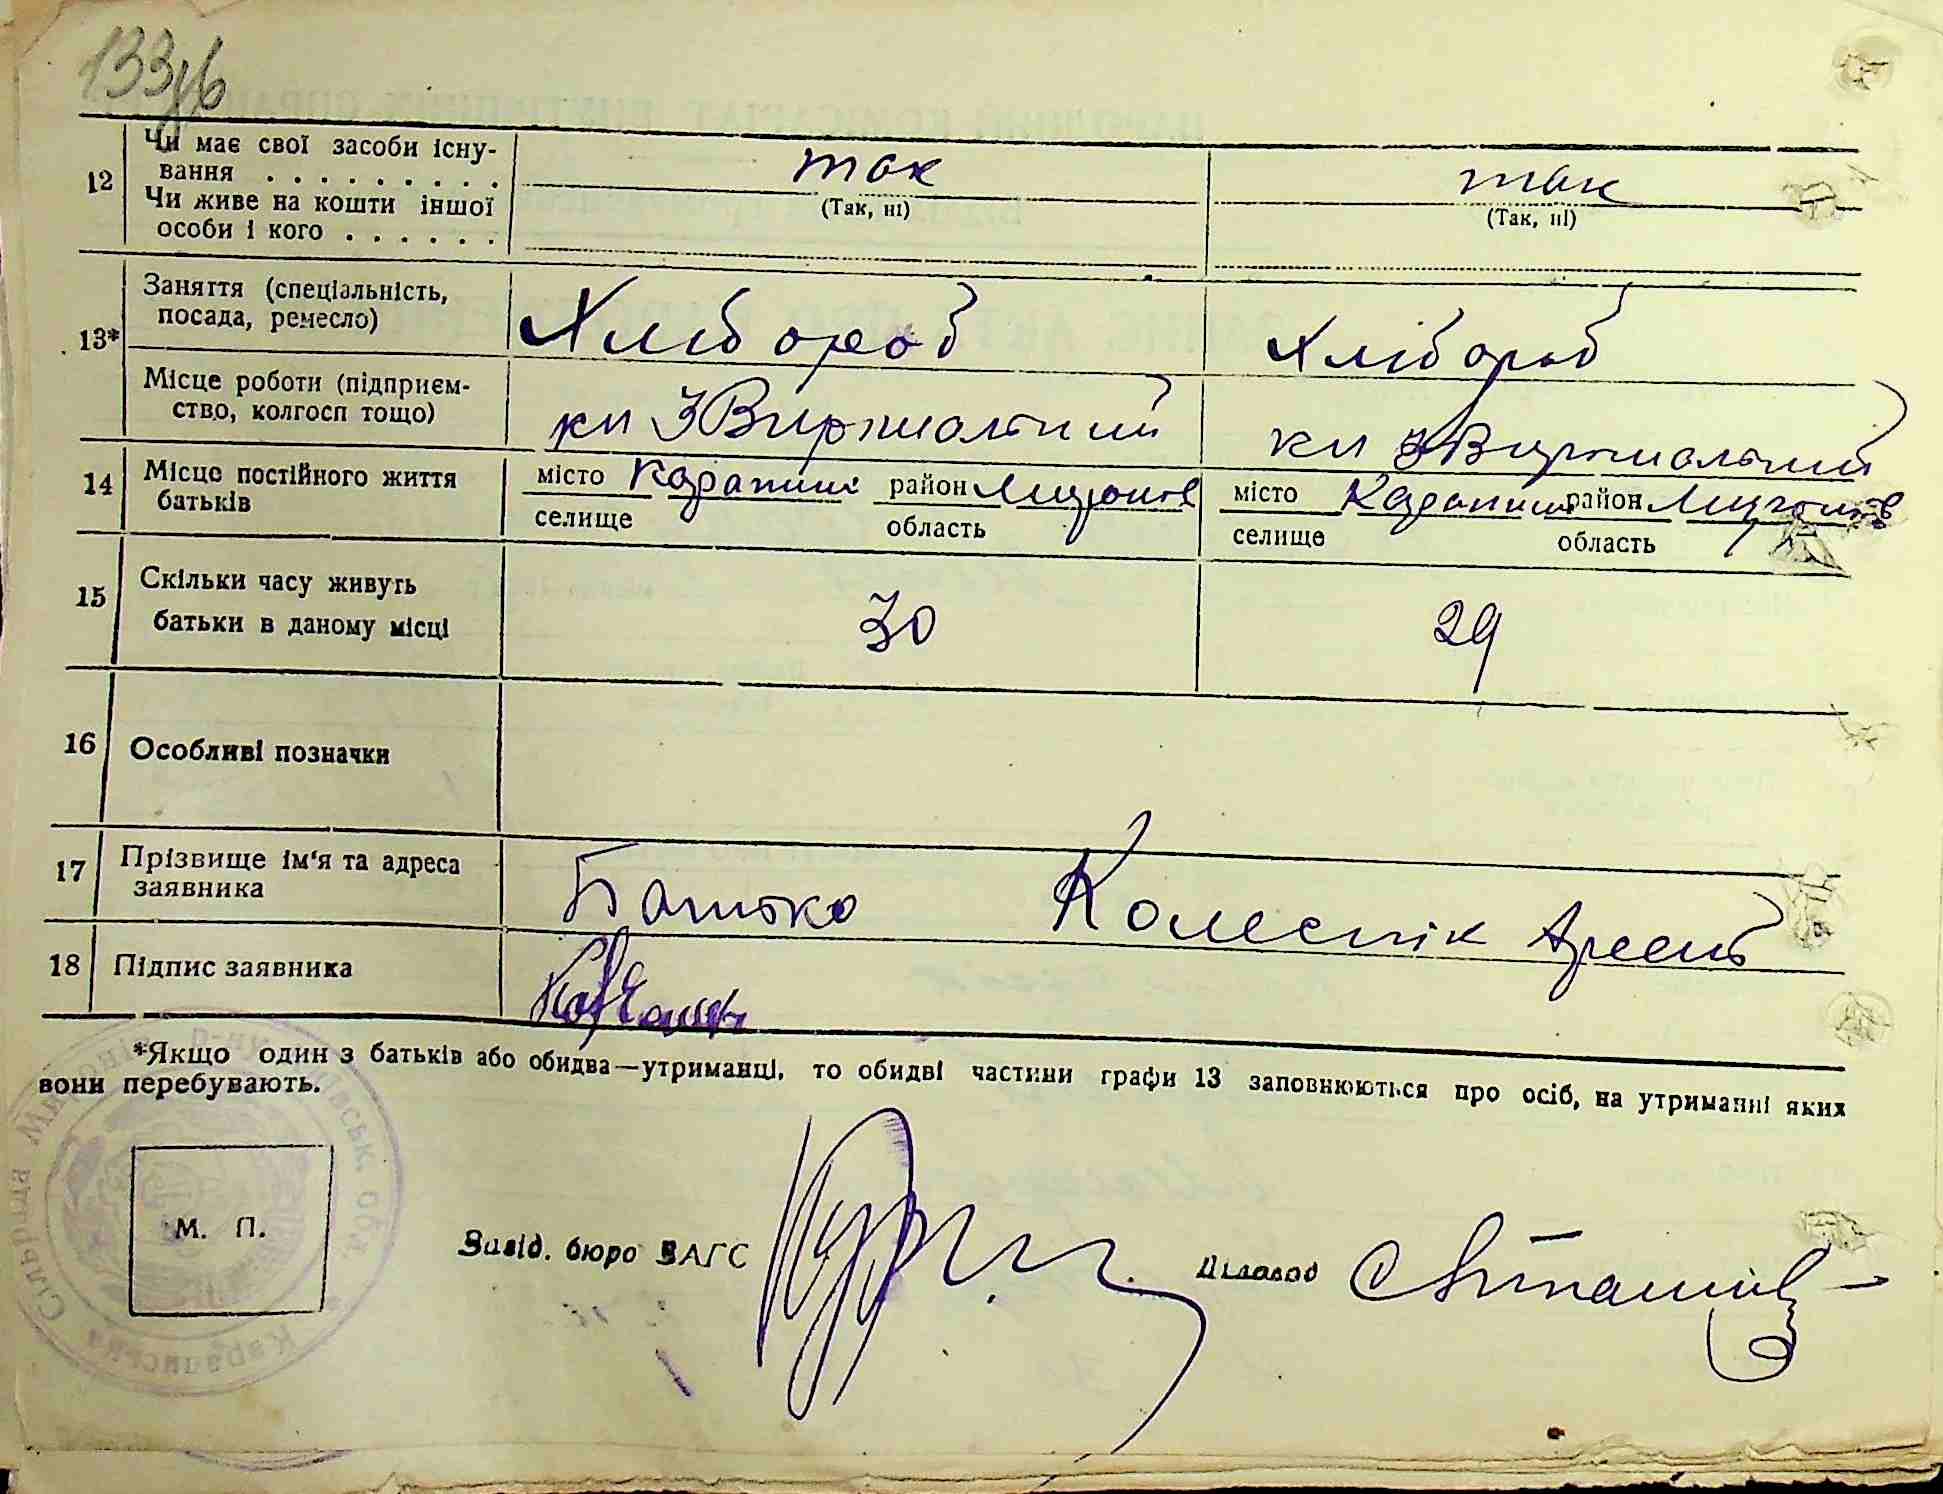 133
12 Чи має свої засоби існу-
вання . . . . . . . . . так так
(Так, ні) (Так, ні)
Чи живе на кошти іншої
особи і кого . . . . . .
13* Заняття (спеціальність,
посада, ремесло) Хлібороб Хлібороб
Місце роботи (підприєм-
ство, колгосп тощо)
14 Місце постійного життя
батьків місто Карапиші район місто район
селище область селище область
15 Скільки часу живуть
батьки в даному місці 30 29
16 Особливі позначки
17 Прізвище ім'я та адреса
заявника Батько Колеснік Арсень
18 Підпис заявника
*Якщо один з батьків або обидва—утриманці, то обидві частини графи 13 заповнюються про осіб, на утриманні яких
вони перебувають.
М. П.
Завід. бюро ЗАГС Діловод